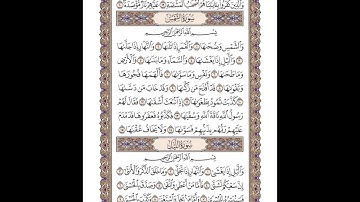 وَالَّذِينَ كَفَرُوا بِـَٔايَٰتِنَا هُمْ أَصْحَٰبُ الْمَشْـَٔمَةِ ١٩ عَلَيْهِمْ نَارٌ مُّؤْصَدَةٌ ٢٠
سُورَةُ الشَّمْسِ
بِسْمِ اللَّهِ الرَّحْمَٰنِ الرَّحِيمِ
وَالشَّمْسِ وَضُحَىٰهَا ١ وَالْقَمَرِ إِذَا تَلَىٰهَا ٢ وَالنَّهَارِ إِذَا جَلَّىٰهَا
٣ وَالَّيْلِ إِذَا يَغْشَىٰهَا ٤ وَالسَّمَاءِ وَمَا بَنَىٰهَا ٥ وَالْأَرْضِ
وَمَا طَحَىٰهَا ٦ وَنَفْسٍ وَمَا سَوَّىٰهَا ٧ فَأَلْهَمَهَا فُجُورَهَا
وَتَقْوَىٰهَا ٨ قَدْ أَفْلَحَ مَن زَكَّىٰهَا ٩ وَقَدْ خَابَ مَن دَسَّىٰهَا
١٠ كَذَّبَتْ ثَمُودُ بِطَغْوَىٰهَا ١١ إِذِ انبَعَثَ أَشْقَىٰهَا ١٢ فَقَالَ لَهُمْ
رَسُولُ اللَّهِ نَاقَةَ اللَّهِ وَسُقْيَٰهَا ١٣ فَكَذَّبُوهُ فَعَقَرُوهَا فَدَمْدَمَ
عَلَيْهِمْ رَبُّهُم بِذَنبِهِمْ فَسَوَّىٰهَا ١٤ وَلَا يَخَافُ عُقْبَٰهَا ١٥
سُورَةُ اللَّيْلِ
بِسْمِ اللَّهِ الرَّحْمَٰنِ الرَّحِيمِ
وَالَّيْلِ إِذَا يَغْشَىٰ ١ وَالنَّهَارِ إِذَا تَجَلَّىٰ ٢ وَمَا خَلَقَ الذَّكَرَ وَالْأُنثَىٰ ٣
إِنَّ سَعْيَكُمْ لَشَتَّىٰ ٤ فَأَمَّا مَنْ أَعْطَىٰ وَاتَّقَىٰ ٥ وَصَدَّقَ بِالْحُسْنَىٰ